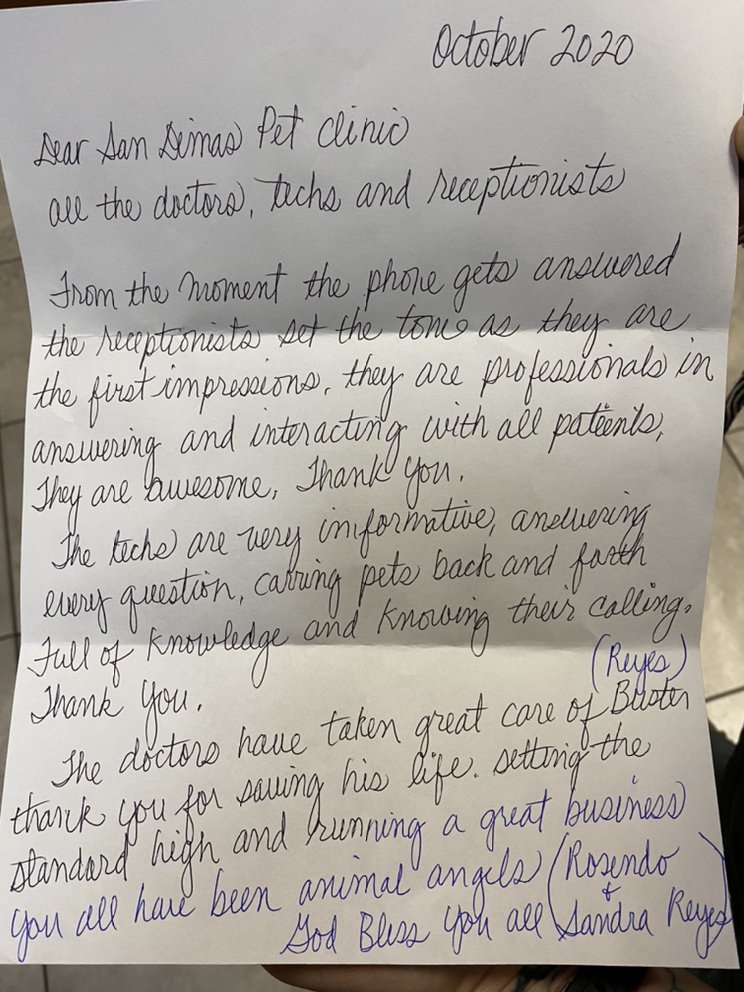 October 2020
Dear San Dimas Pet Clinic
all the doctors, techs and receptionists
From the moment the phone gets answered
the receptionists set the tone as they are
the first impressions, they are professionals in
answering and interacting with all patients,
They are awesome, Thank You.
The techs are very informative, answering
every question, carring pets back and forth
Full of knowledge and knowing their calling.
(Reyes)
Thank You.
The doctors have taken great care of Buster
thank you for saving his life. setting the
standard high and running a great business
you all have been animal angels (Rosendo
+
God Bless You all Sandra Reyes)